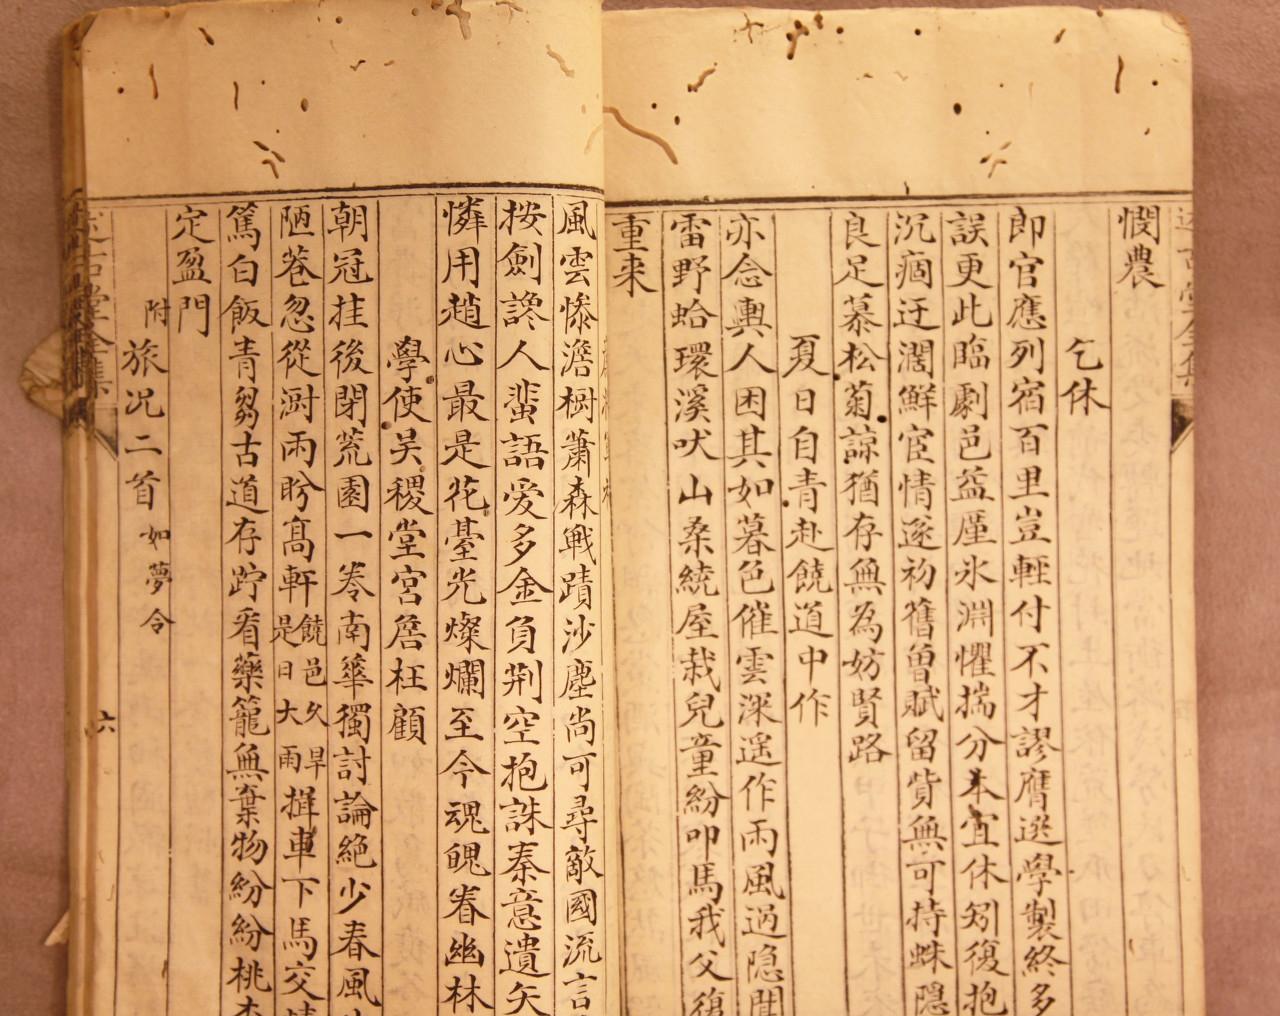 憫農
乞休
即官應列宿百里豈輕付不才謬膺選學製終多
誤更此臨劇邑益厪氷淵懼揣分本宜休矧復抱
沉痼迂濶鮮宦情遂初舊曾賦留貲無可持蛛隱
良足慕松菊諒猶存無為妨賢路
夏日自青赴饒道中作
亦念輿人困其如暮色催雲深遥作雨風過隐聞
雷野蛤環溪吠山桑繞屋栽兒童紛叩馬我父復
重来
風雲慘澹樹蕭森戰蹟沙塵尚可尋敵國流言
按劍讒人蜚語爱多金負荆空抱誅秦意遺矢
憐用趙心最是花臺光燦爛至今魂魄眷幽林
學使吴稷堂宮詹枉顧
朝冠挂後閉荒園一卷南華獨討論絶少春風
陋巷忽從澍雨盻高軒饒邑久旱是日大雨揖車下馬交情
篤白飯青芻古道存貯看藥籠無棄物紛紛桃李
定盈門
附
旅况二首如夢令
六